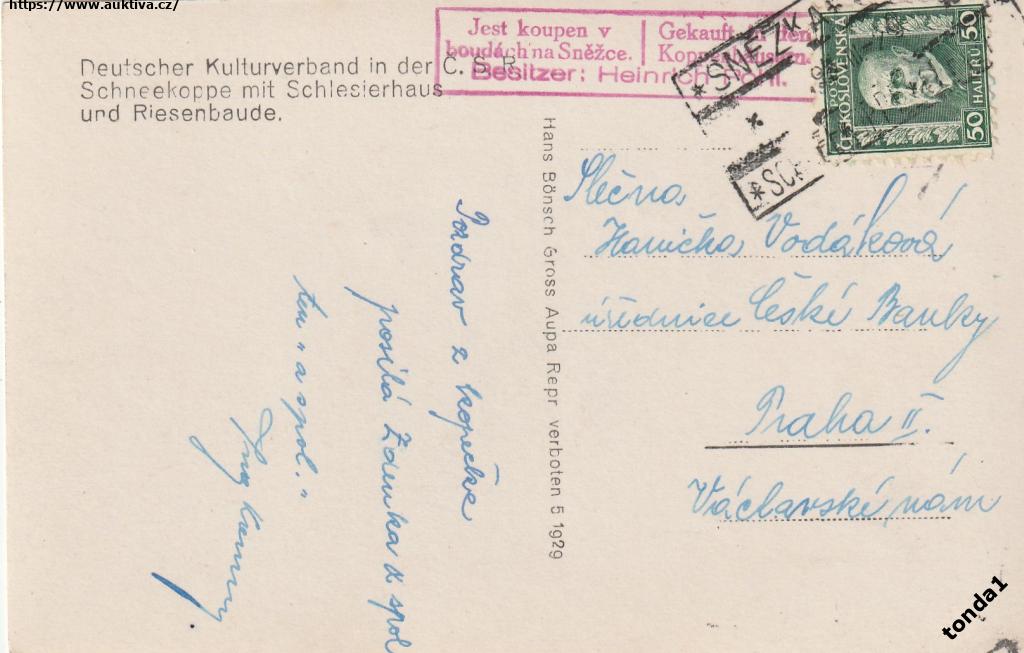 https://www.auktiva.cz/
Deutscher Kulturverband in der Č. S. R.
Schneekoppe mit Schlesierhaus
und Riesenbaude.
Jest koupen v
boudách na Sněžce.
Gekauft in den
Koppenhäusern.
Besitzer: Heinrich Pohl.
*SNĚŽKA*
*SCH
POŠTA
ČESKOSLOVENSKÁ
50
HALÉŘŮ
50
Hans Bönsch Gross Aupa Repr verboten 5 1929
Slečna
Hanička Vodáková
úřednice České Banky
Praha II.
Václavské nám
Pozdrav z kopečka
posílá Zdenka z spol
ten „a spol."
tonda1